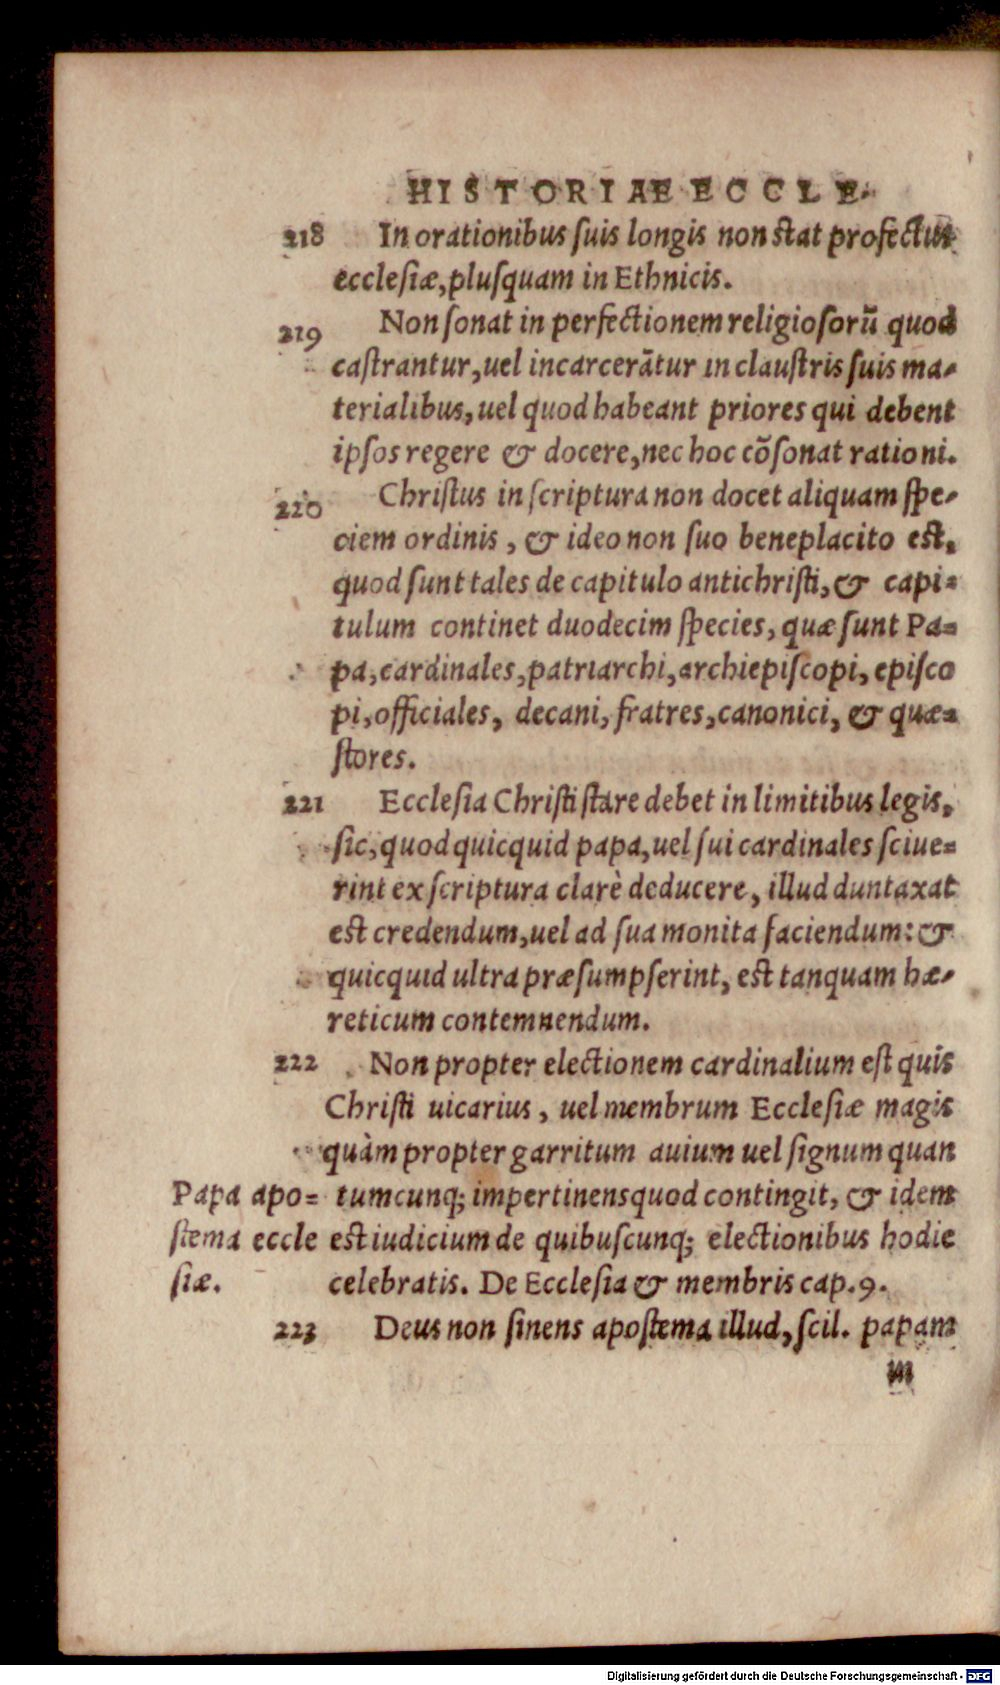 HISTORIAE ECCLE-
218 In orationibus ſuis longis non ſtat profectus
eccleſiæ, pluſquam in Ethnicis.
219 Non ſonat in perfectionem religioſorũ quod
caſtrantur, uel incarcerãtur in clauſtris ſuis ma-
terialibus, uel quod habeant priores qui debent
ipſos regere & docere, nec hoc cõſonat rationi.
220 Chriſtus in ſcriptura non docet aliquam ſpe-
ciem ordinis, & ideo non ſuo beneplacito eſt,
quod ſunt tales de capitulo antichriſti, & capi-
tulum continet duodecim ſpecies, quæ ſunt Pa-
pa, cardinales, patriarchi, archiepiſcopi, epiſco
pi, officiales, decani, fratres, canonici, & quæ-
ſtores.
221 Eccleſia Chriſti ſtare debet in limitibus legis,
ſic, quod quicquid papa, uel ſui cardinales ſciue-
rint ex ſcriptura clarè deducere, illud duntaxat
eſt credendum, uel ad ſua monita faciendum: &
quicquid ultra præſumpſerint, eſt tanquam hæ-
reticum contemnendum.
222 Non propter electionem cardinalium eſt quis
Chriſti uicarius, uel membrum Eccleſiæ magis
quàm propter garritum auium uel ſignum quan
Papa apo- tumcunq; impertinens quod contingit, & idem
ſtema eccle eſt iudicium de quibuſcunq; electionibus hodie
ſiæ. celebratis. De Eccleſia & membris cap. 9.
223 Deus non ſinens apoſtema illud, ſcil. papam
in
Digitalisierung gefördert durch die Deutsche Forschungsgemeinschaft - DFG